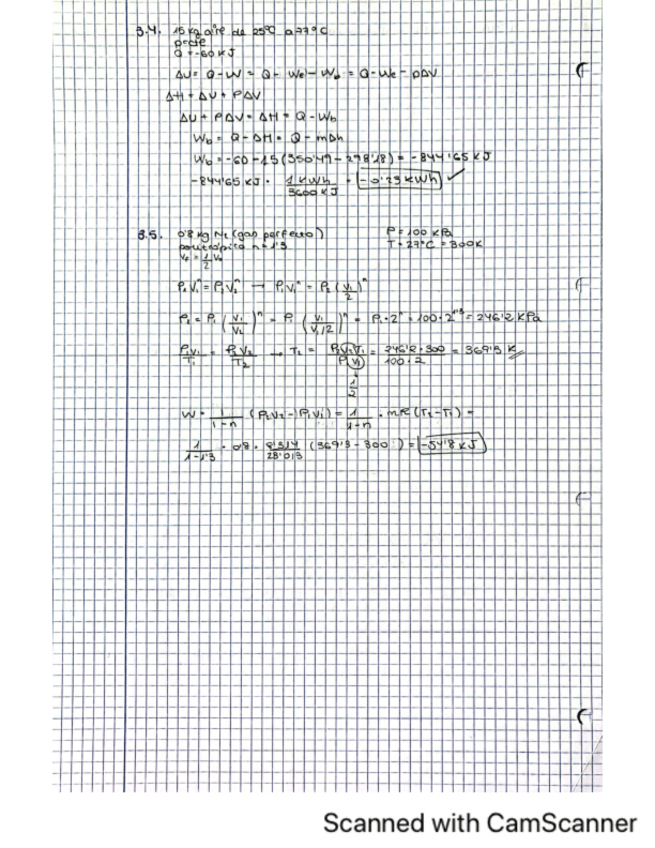 3.4. 15 kg aire de 25ºC a 77ºC
pcte
Q = -60 KJ
ΔU = Q - W = Q - We - Wb = Q - We - pΔV
ΔH = ΔU + PΔV
ΔU + PΔV = ΔH = Q - Wb
Wb = Q - ΔH = Q - mΔh
Wb = -60 - 15 (350'49 - 298'18) = -844'65 KJ
-844'65 KJ · 1 KWh / 3600 KJ = -0'23 KWh ✓
3.5. 0'8 kg N2 (gas perfecto) P = 100 KPa
politrópico n = 1'3 T = 27ºC = 300K
Vf = 1/2 V0
P1 V1^n = P2 V2^n → P1 V1^n = P2 (V1/2)^n
P2 = P1 (V1/V2)^n = P1 (V1/V1/2)^n = P1 · 2^n = 100 · 2^1'3 = 246'2 KPa
P1V1/T1 = P2V2/T2 → T2 = P2V2T1/P1V1 = 246'2 · 300/100 · 2 = 369'3 K
1/2
W = 1/1-n (P2V2 - P1V1) = 1/1-n · mR (T2 - T1) =
1/1-1'3 · 0'8 · 8'314/28'013 (369'3 - 300) = -54'8 KJ
Scanned with CamScanner